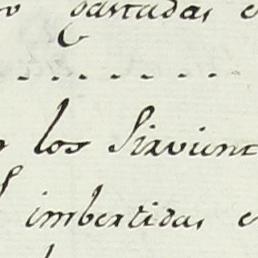 gastadas e
los Sirvient
imbertidas e